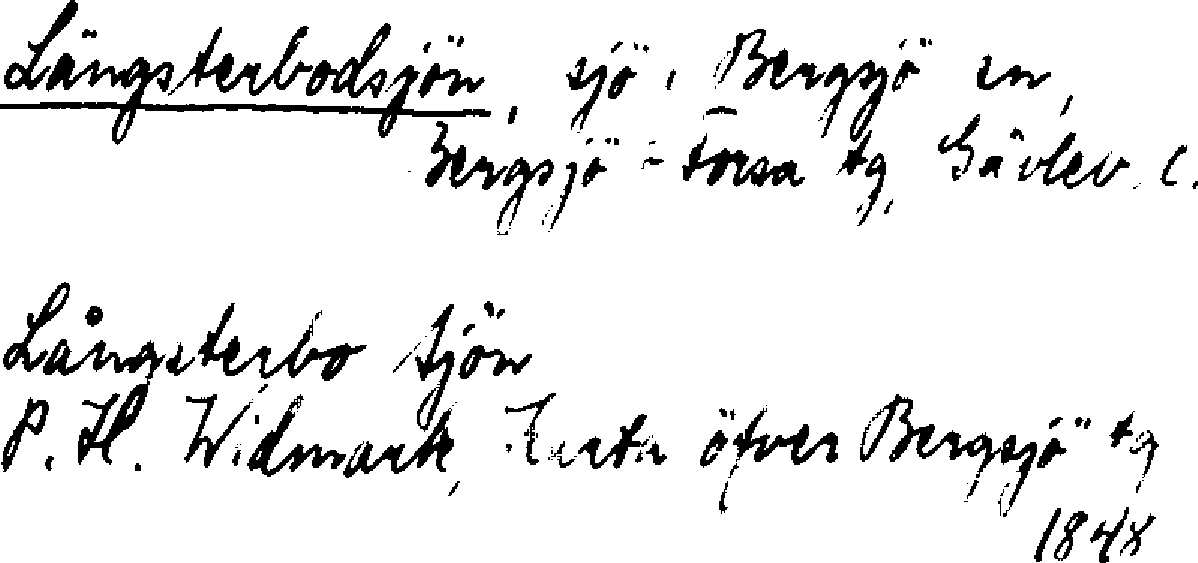 Längsterbodsjön, sjö i Bergsjö sn,
Bergsjö - Forsa tg, Gävleb. l.
Långsterbo Sjön
P. H. Widmark, Karta öfver Bergsjö tg
1848